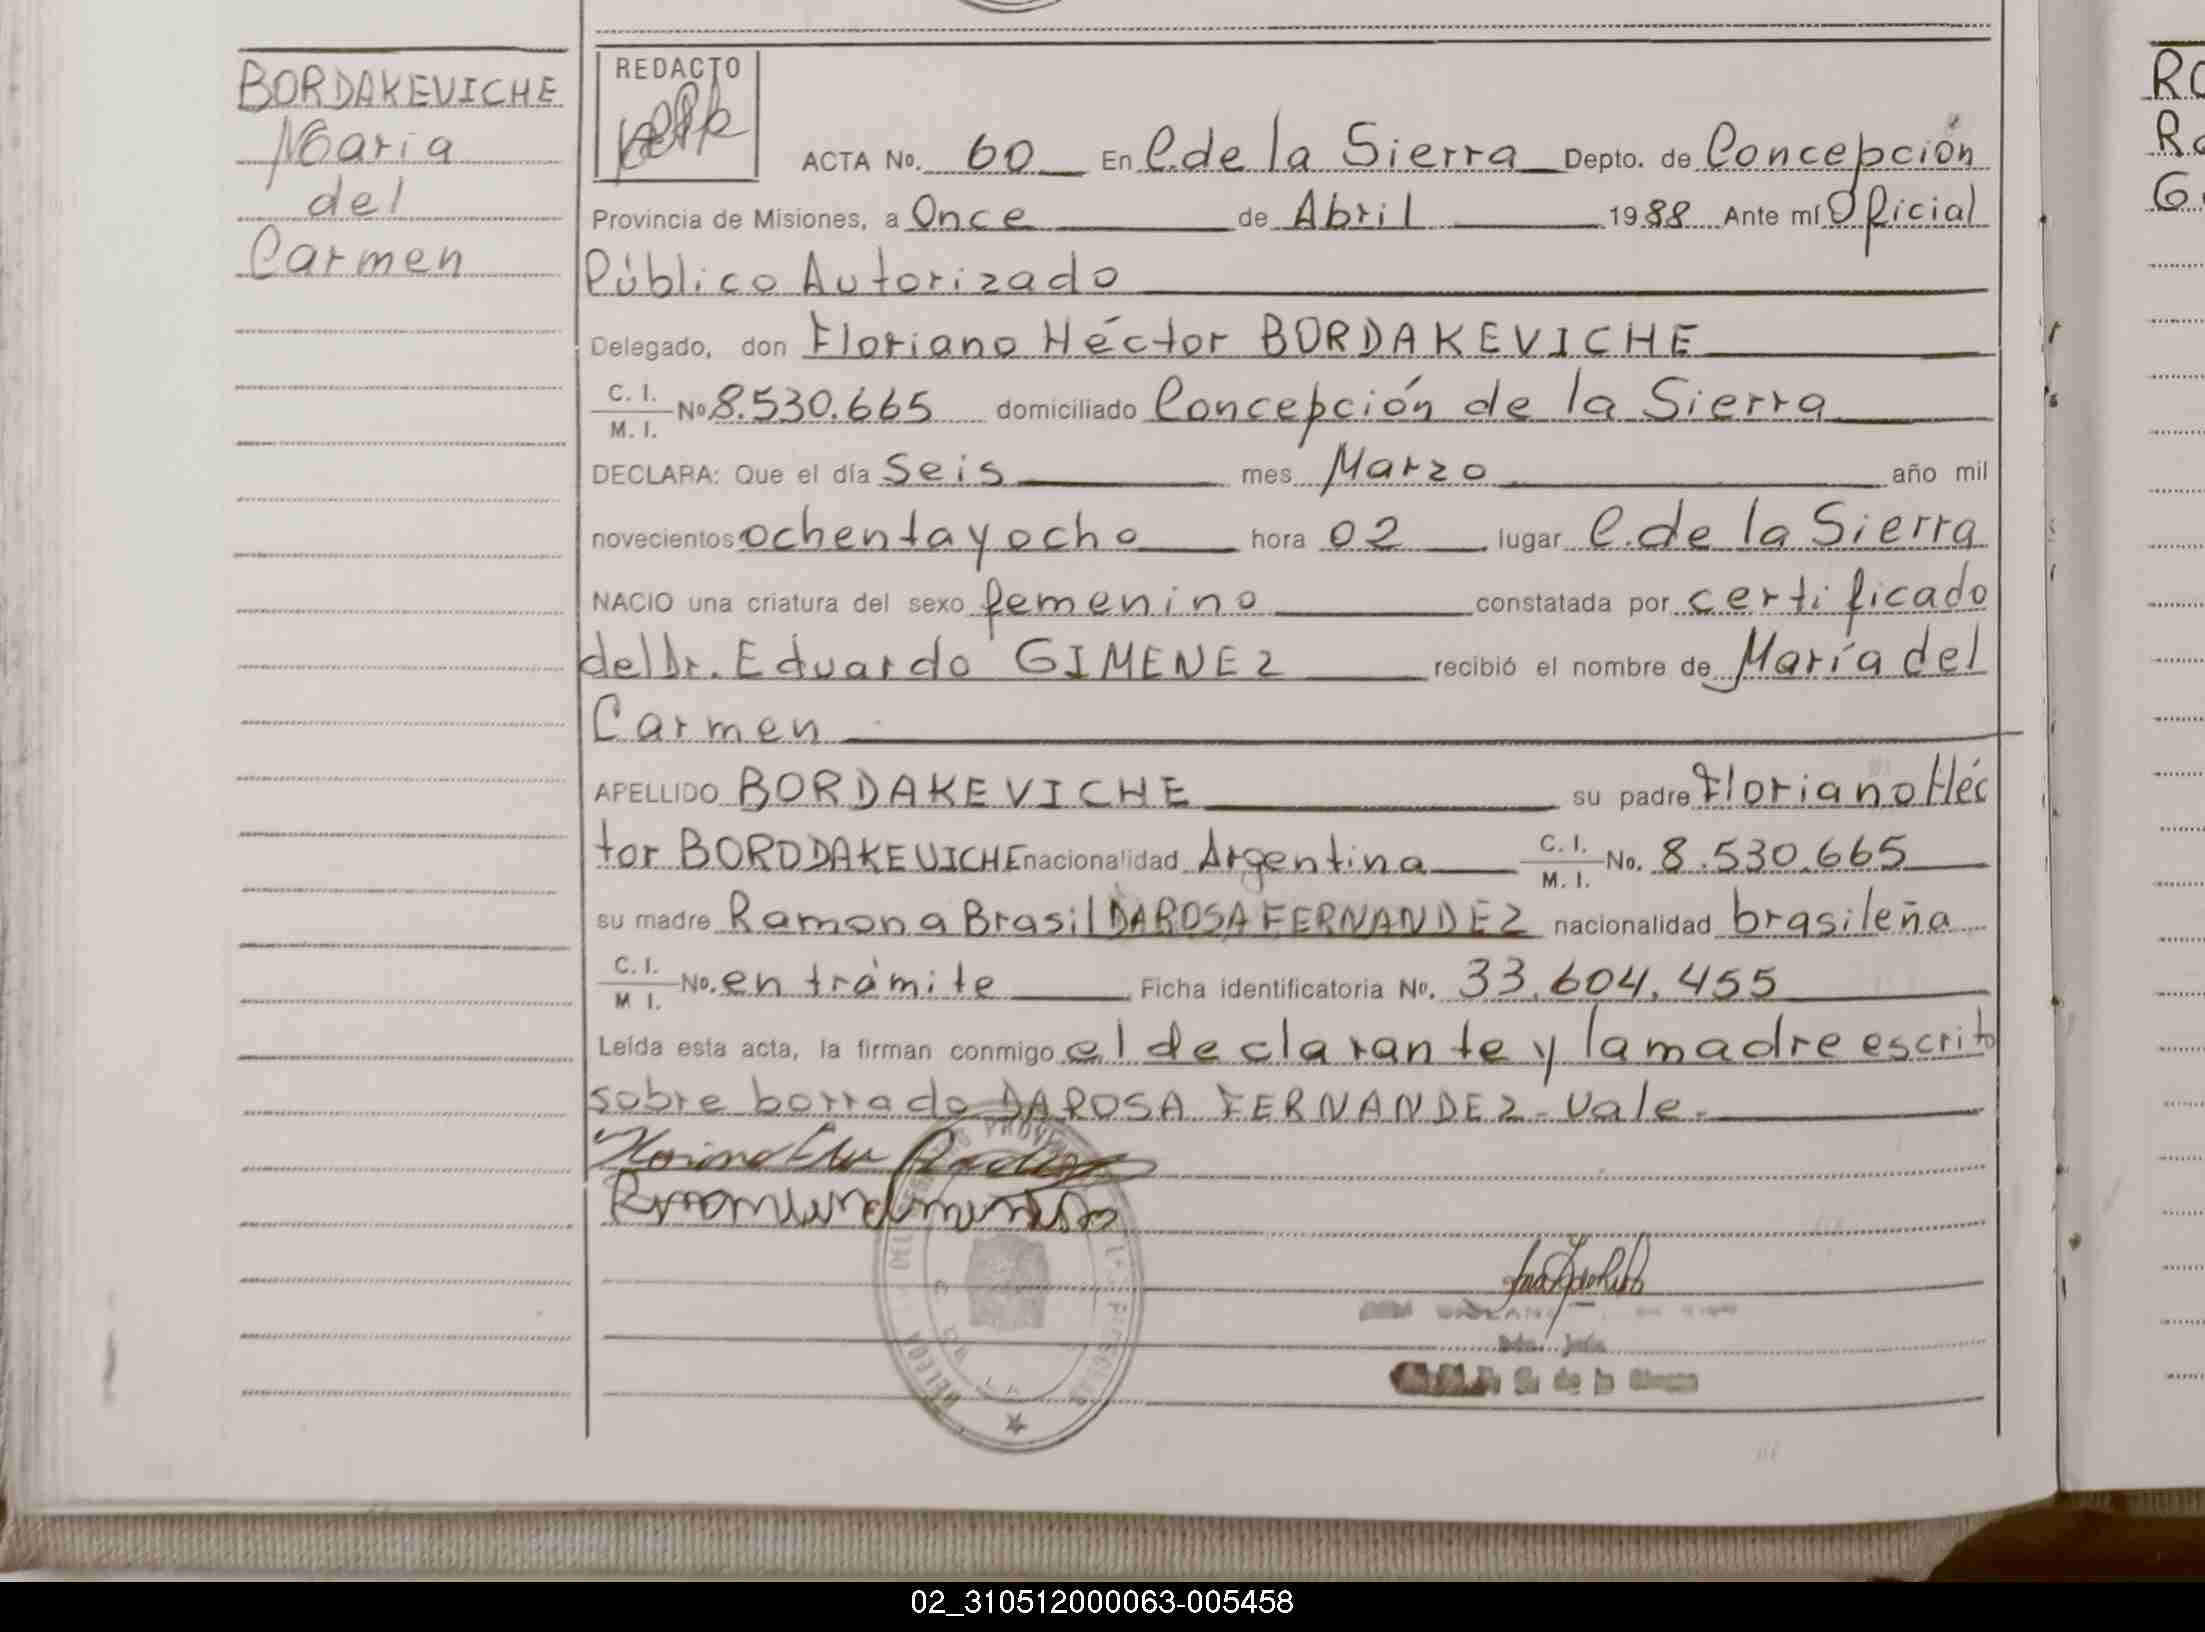 BORDAKEVICHE
Maria
del
Carmen
REDACTO
ACTA No. 60 En C. de la Sierra Depto. de Concepción
Provincia de Misiones, a Once de Abril 1988 Ante mí Oficial
Público Autorizado
Delegado, don Floriano Héctor BORDAKEVICHE
C. I.
M. I. No 8.530.665 domiciliado Concepción de la Sierra
DECLARA: Que el día Seis mes Marzo año mil
novecientos ochenta y ocho hora 02 lugar C. de la Sierra
NACIO una criatura del sexo femenino constatada por certificado
del Dr. Eduardo GIMENEZ recibió el nombre de María del
Carmen
APELLIDO BORDAKEVICHE su padre Floriano Héc
tor BORDDAKEVICHE nacionalidad Argentina C. I. M. I. No. 8.530.665
su madre Ramona Brasil DAROSA FERNANDEZ nacionalidad brasileña
C. I.
M I. No. en trámite Ficha identificatoria No. 33.604.455
Leída esta acta, la firman conmigo el declarante y la madre escrito
sobre borrado DAROSA FERNANDEZ - Vale.
C. de la Sierra
RO
Ro
G
02_310512000063-005458